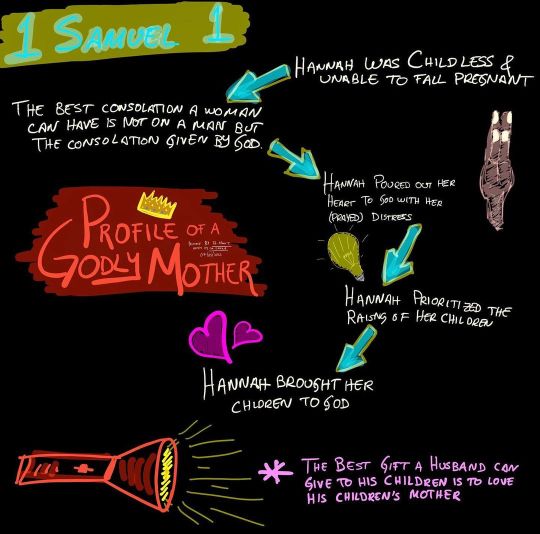 1 SAMUEL 1
HANNAH WAS CHILDLESS &
UNABLE TO FALL PREGNANT
THE BEST CONSOLATION A WOMAN
CAN HAVE IS NOT ON A MAN BUT
THE CONSOLATION GIVEN BY GOD.
HANNAH POURED OUT HER
HEART TO GOD WITH HER
(PRAYED) DISTRESS
PROFILE OF A
GODLY MOTHER
HANNAH PRIORITIZED THE
RAISNG OF HER CHILDREN
HANNAH BROUGHT HER
CHLDREN TO GOD
* THE BEST GIFT A HUSBAND CAN
GIVE TO HIS CHILDREN IS TO LOVE
HIS CHILDREN'S MOTHER